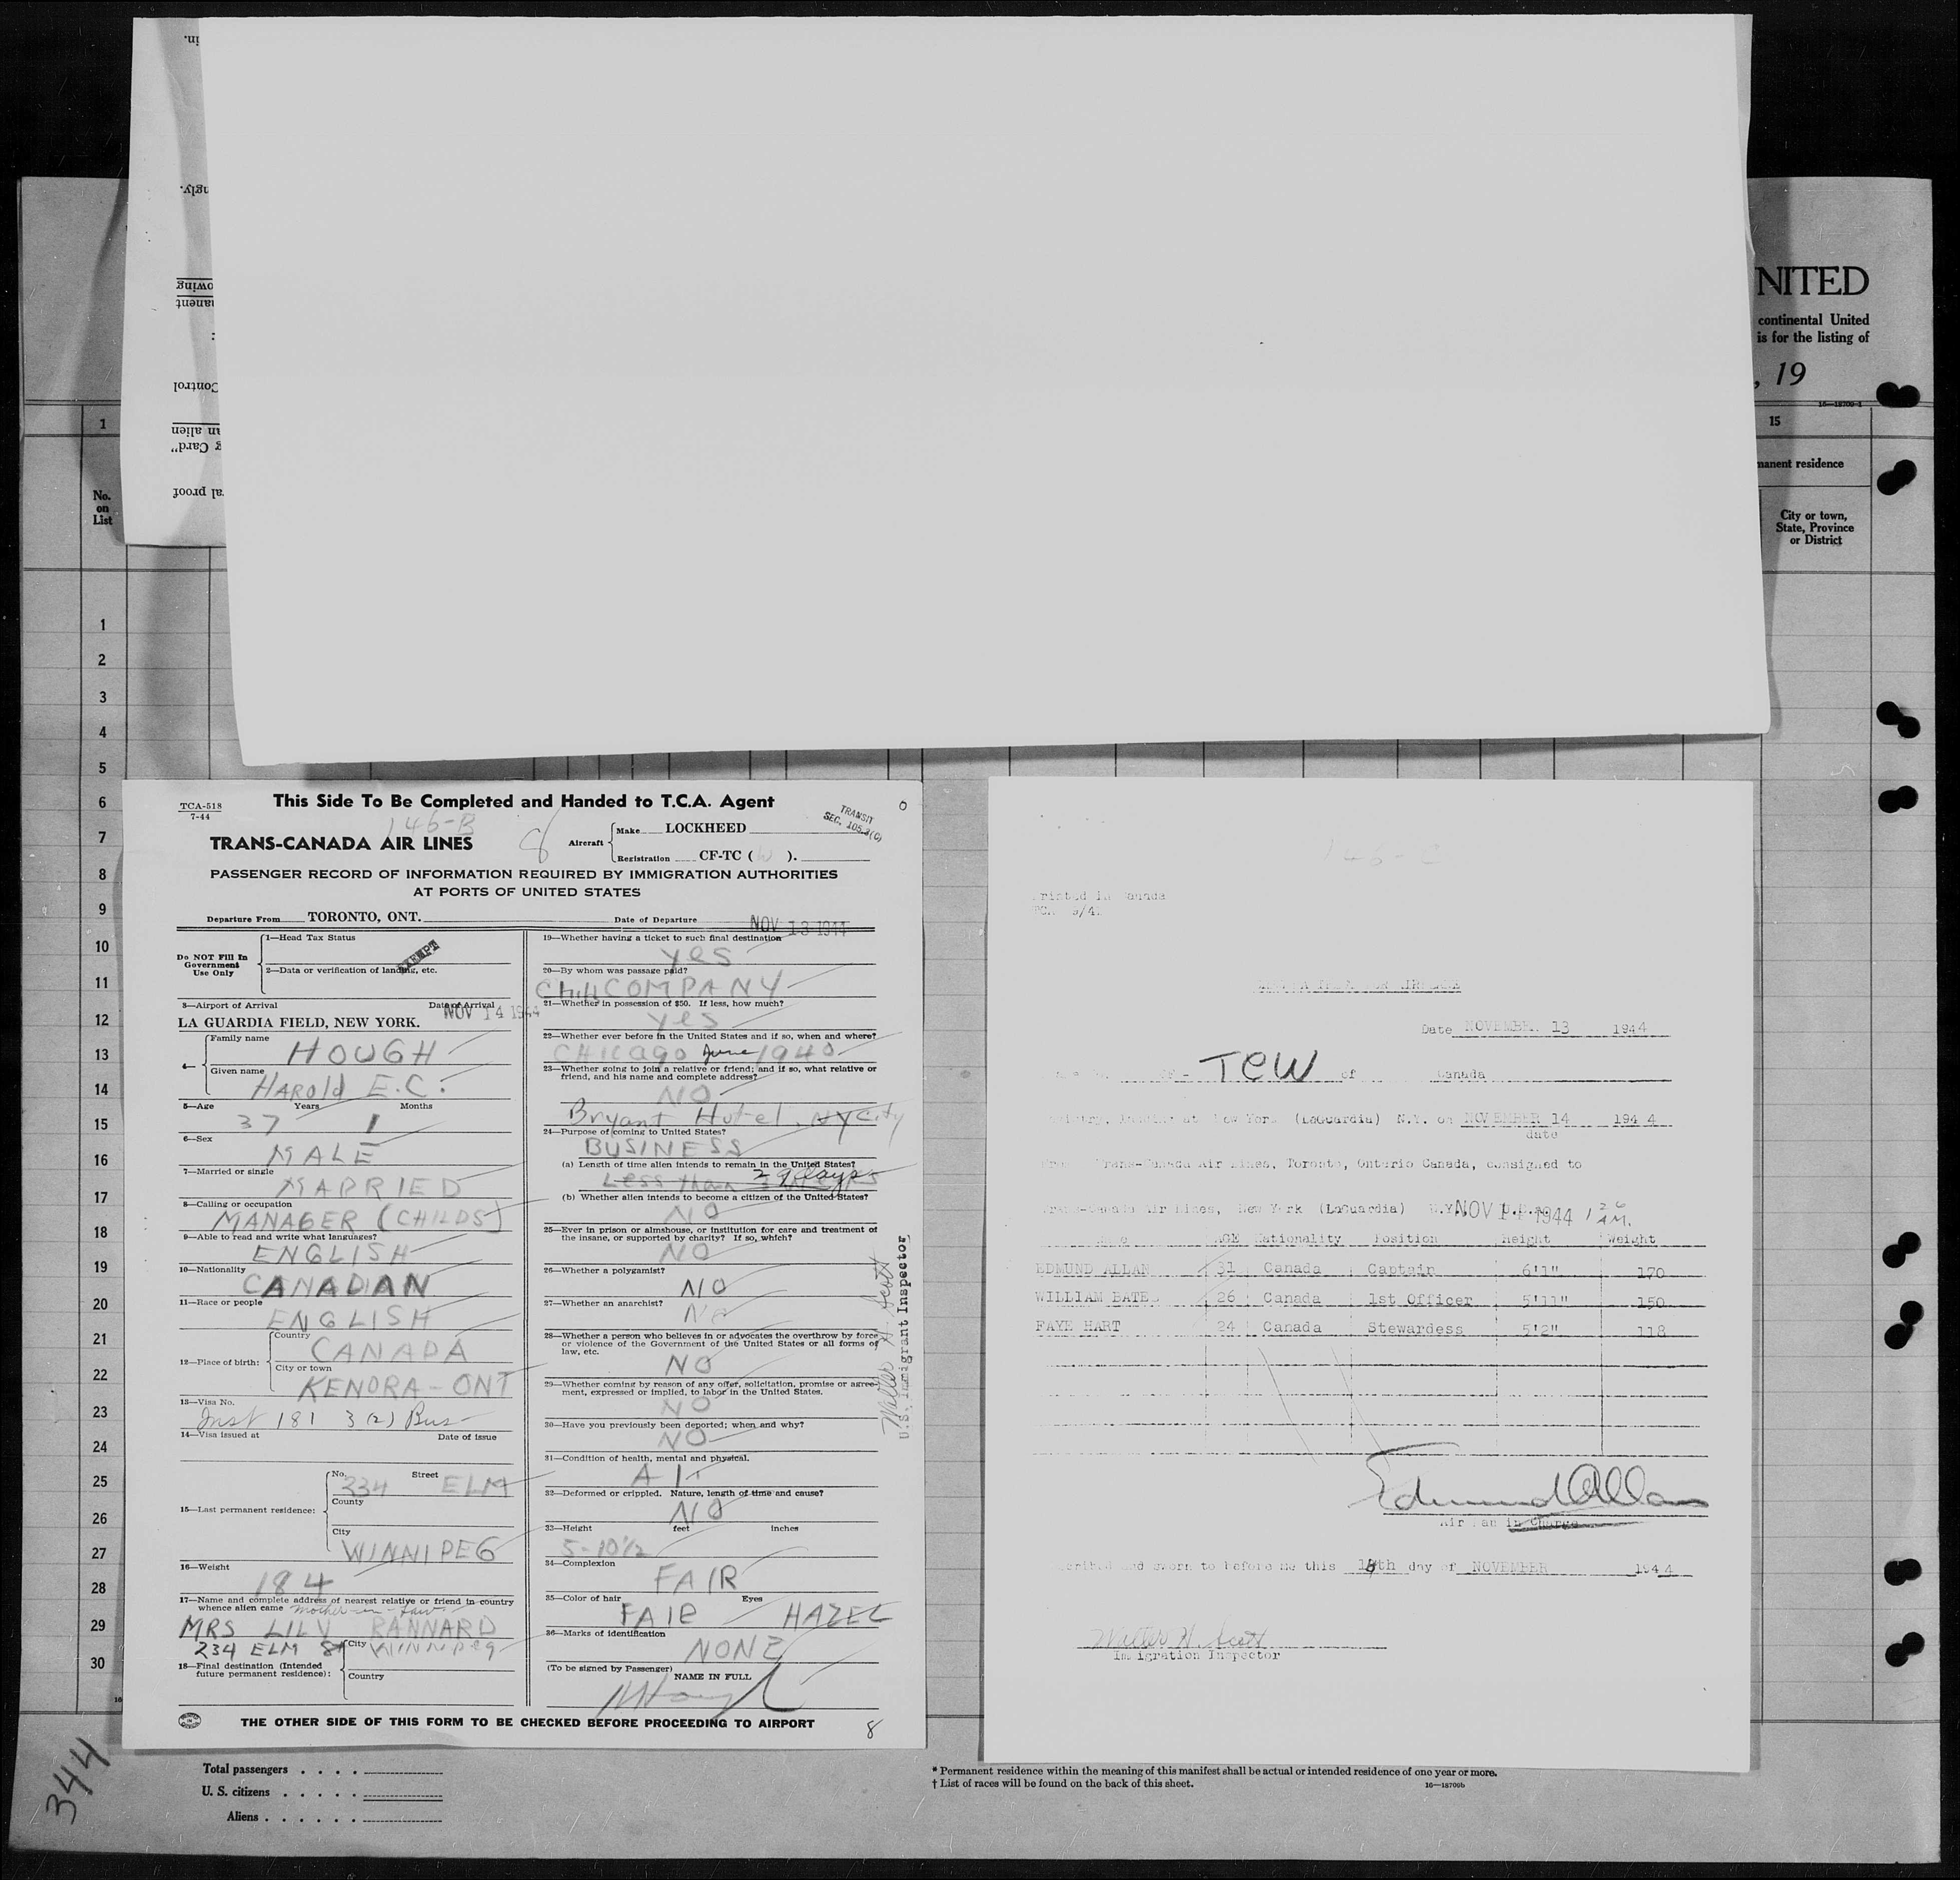 NITED
continental United
is for the listing of
, 19
16—18709-1
1
15
manent residence
No.
on
List
City or town,
State, Province
or District
1
2
3
4
5
6
7
8
9
10
11
12
13
14
15
16
17
18
19
20
21
22
23
24
25
26
27
28
29
30
TCA-518
7-44
This Side To Be Completed and Handed to T.C.A. Agent
TRANSIT
SEC. 105.3(C)
146-B
TRANS-CANADA AIR LINES
8
Aircraft
Make LOCKHEED
Registration CF-TC ( W ).
PASSENGER RECORD OF INFORMATION REQUIRED BY IMMIGRATION AUTHORITIES
AT PORTS OF UNITED STATES
Departure From TORONTO, ONT. Date of Departure NOV 13 1944
Do NOT Fill In
Government
Use Only
1—Head Tax Status
EXEMPT
2—Data or verification of landing, etc.
3—Airport of Arrival Date of Arrival
LA GUARDIA FIELD, NEW YORK. NOV 14 1944
4—
Family name
HOUGH
Given name
HAROld E.C.
5—Age Years Months
37 1
6—Sex
MALE
7—Married or single
MARRIED
8—Calling or occupation
MANAGER (CHILDS)
9—Able to read and write what languages?
ENGLISH
10—Nationality
CANADIAN
11—Race or people
ENGLISH
12—Place of birth:
Country
CANADA
City or town
KENORA - ONT
13—Visa No.
Inst 181 3(2) Bus
14—Visa issued at Date of issue
15—Last permanent residence:
No. Street
234 ELM
County
City
WINNIPEG
16—Weight
184
17—Name and complete address of nearest relative or friend in country
whence alien came Mother-in-law
MRS LILY RANNARD
234 ELM St City WINNIPEG
18—Final destination (Intended
future permanent residence):
Country
19—Whether having a ticket to such final destination
yes
20—By whom was passage paid?
COMPANY
21—Whether in possession of $50. If less, how much?
yes
22—Whether ever before in the United States and if so, when and where?
CHICAGO June 1940
23—Whether going to join a relative or friend; and if so, what relative or
friend, and his name and complete address?
NO
Bryant Hotel. NY City
24—Purpose of coming to United States?
BUSINESS
(a) Length of time alien intends to remain in the United States?
Less than 29 days
(b) Whether alien intends to become a citizen of the United States?
NO
25—Ever in prison or almshouse, or institution for care and treatment of
the insane, or supported by charity? If so, which?
NO
26—Whether a polygamist?
NO
27—Whether an anarchist?
No
28—Whether a person who believes in or advocates the overthrow by force
or violence of the Government of the United States or all forms of
law, etc.
NO
29—Whether coming by reason of any offer, solicitation, promise or agree-
ment, expressed or implied, to labor in the United States.
NO
30—Have you previously been deported; when and why?
NO
31—Condition of health, mental and physical.
A1
32—Deformed or crippled. Nature, length of time and cause?
NO
33—Height feet inches
5-10½
34—Complexion
FAIR
35—Color of hair Eyes
FAIR HAZEL
36—Marks of identification
NONE
(To be signed by Passenger) NAME IN FULL
THE OTHER SIDE OF THIS FORM TO BE CHECKED BEFORE PROCEEDING TO AIRPORT
8
Walter H. Scott
U.S. Immigrant Inspector
Printed in Canada
Date NOVEMBER 13 1944
CF- TCW of Canada
landing at New York (LaGuardia) N.Y. on NOVEMBER 14 1944
date
From Trans-Canada Air Lines, Toronto, Ontario Canada, consigned to
Trans-Canada Air Lines, New York (LaGuardia) N.Y. NOV 14 1944 1 26 AM.
Name AGE Nationality Position Height Weight
EDMUND ALLAN 31 Canada Captain 6'1" 170
WILLIAM BATES 26 Canada 1st Officer 5'11" 150
FAYE HART 24 Canada Stewardess 5'2" 118
Edmund Allan
Air Man in Charge
and sworn to before me this 14th day of NOVEMBER 1944
Walter H. Scott
Immigration Inspector
344
Total passengers . . . .
U. S. citizens . . . . .
Aliens . . . . . .
* Permanent residence within the meaning of this manifest shall be actual or intended residence of one year or more.
† List of races will be found on the back of this sheet. 16—18709b